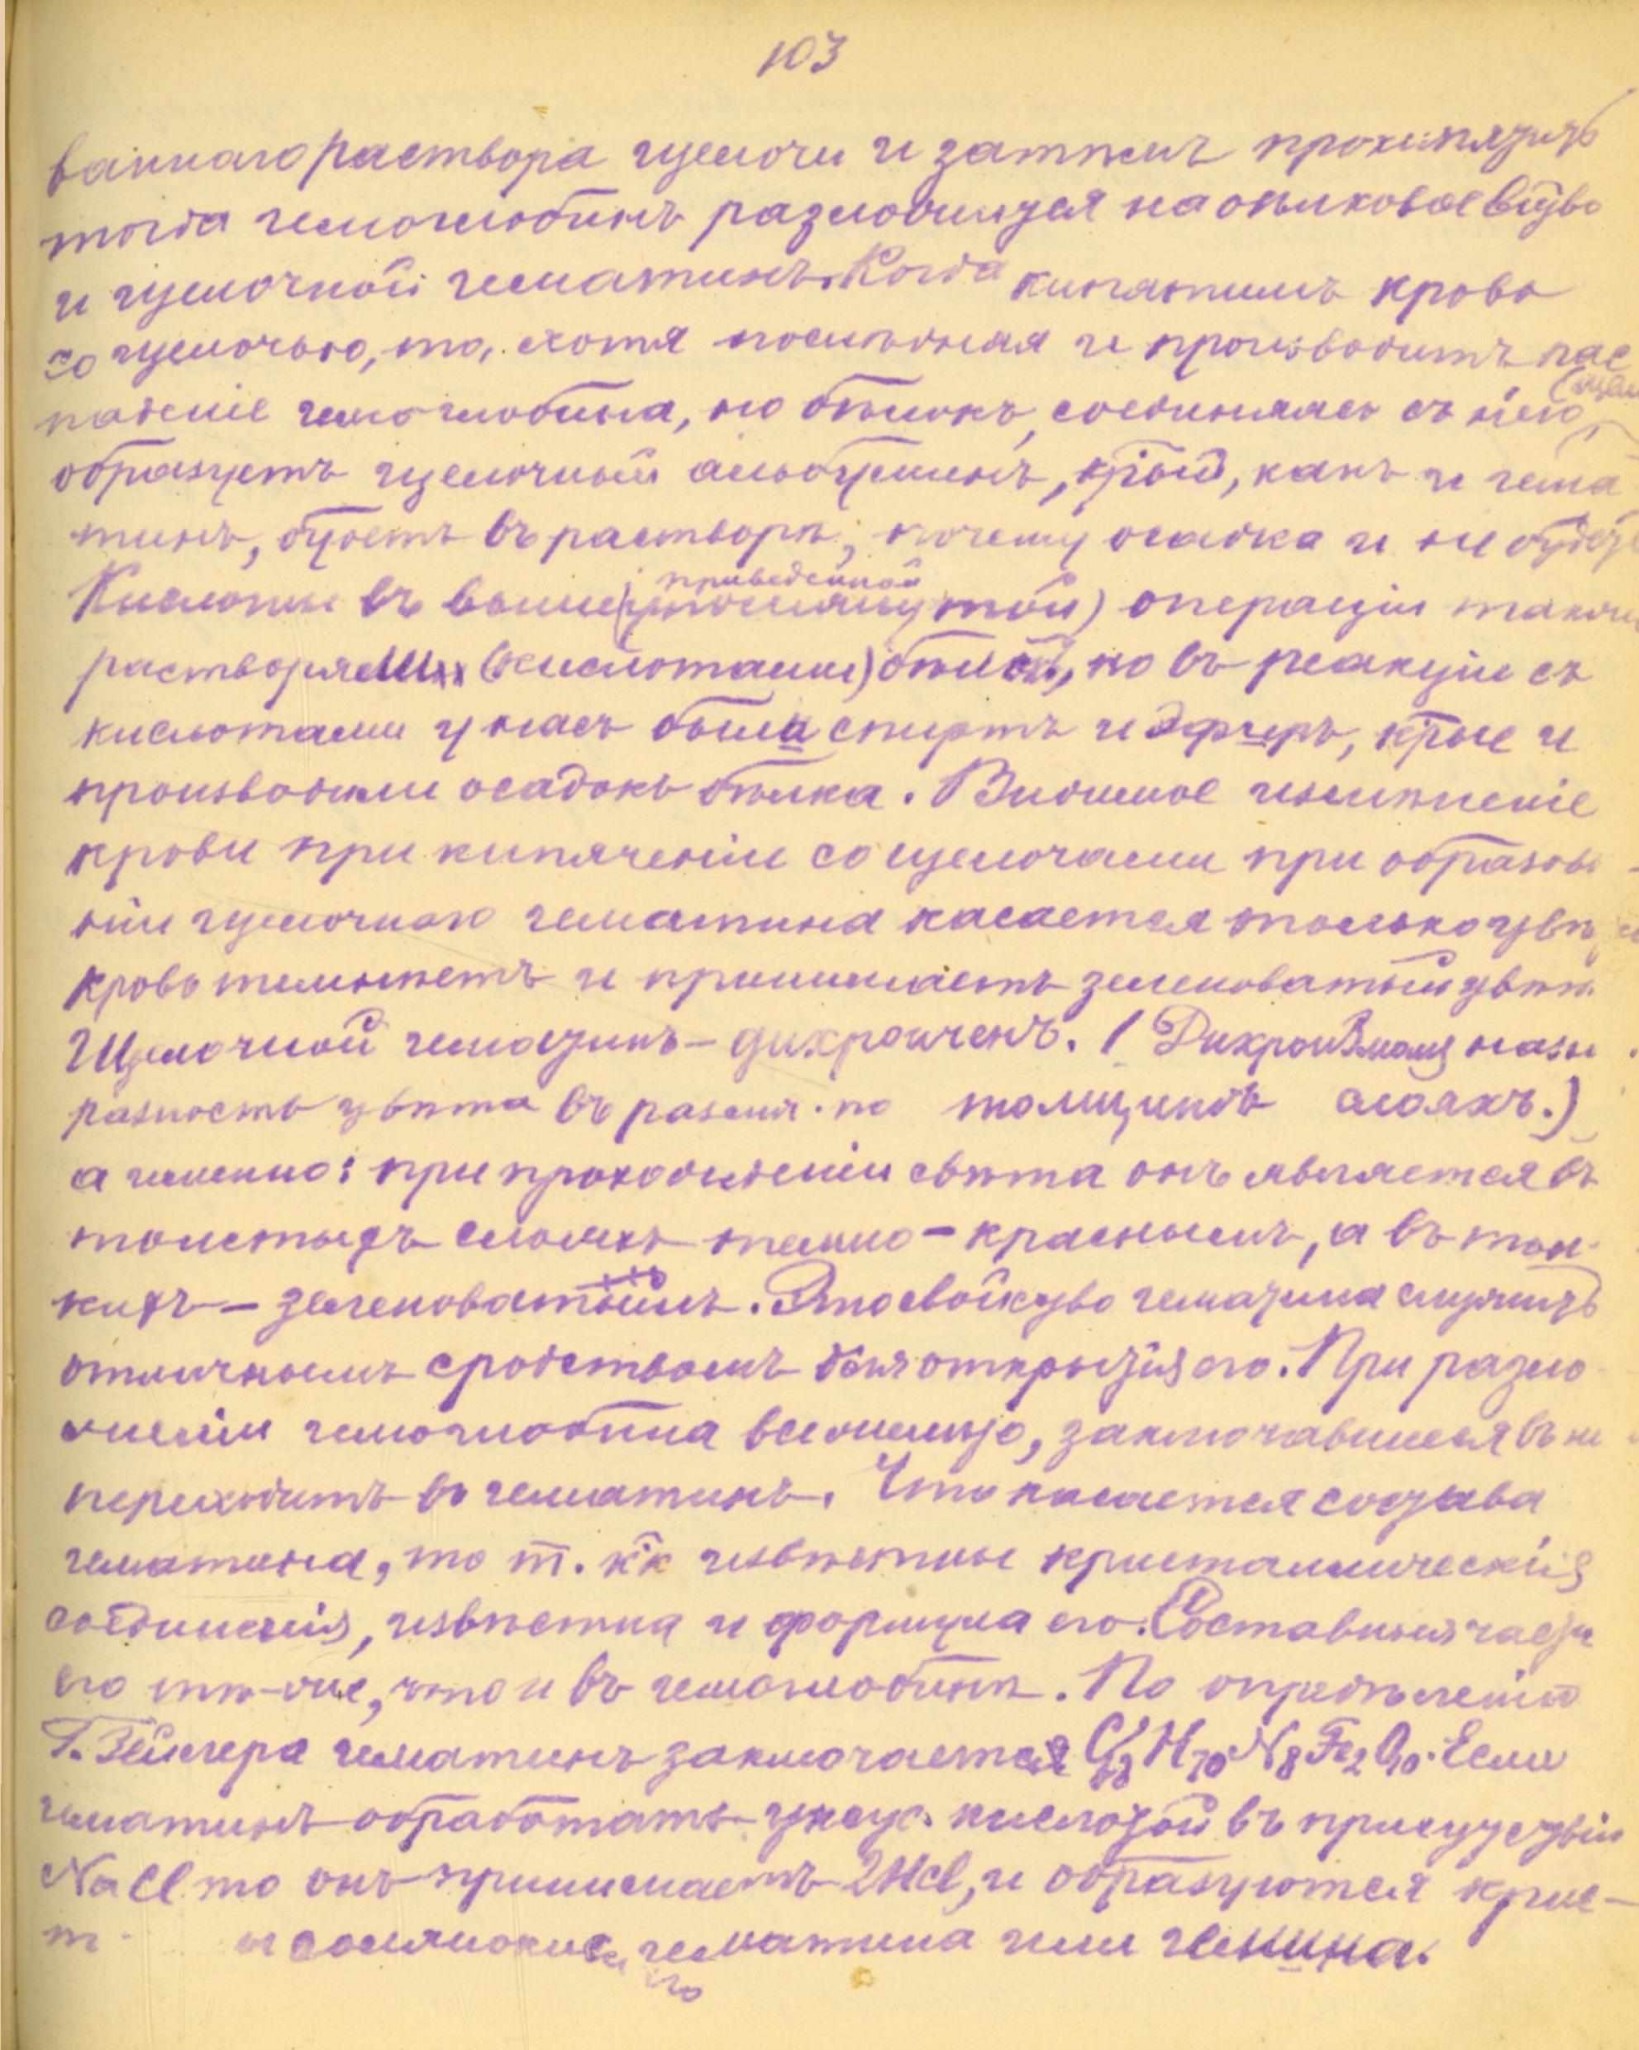 103
ваннаго раствора щелочи и затѣмъ прокипятить
тогда гемоглобинъ разложится на бѣлковое в-ство
и щелочной гематинъ. Когда кипятимъ кровь
со щелочью, то, хотя послѣдняя и производитъ рас
паденіе гемоглобина, но бѣлокъ, соединяясь съ нею,
образуетъ щелочный альбуминъ, к-рый, какъ и гема
тинъ, будетъ въ растворѣ, почему осадка и не будетъ
приведенной
Кислоты въ выше (упомянутой) операціи также
растворяли (кислотами) бѣлокъ, но въ реакціи съ
кислотами у насъ были спиртъ и эфиръ, к-рые и
производили осадокъ бѣлка. Видимое измѣненіе
крови при кипяченіи со щелочами при образова
ніи щелочнаго гематина касается только цвѣта
кровь темнѣетъ и принимаетъ зеленоватый цвѣтъ.
Щелочной гематинъ – дихроиченъ. ( Дихроизмомъ назы
разность цвѣта въ различ. по толщинѣ слояхъ.)
а именно: при прохожденіи свѣта онъ является въ
толстыхъ слояхъ темно-краснымъ, а въ тон
кихъ – зеленоватымъ. Это свойство гематина служитъ
отличнымъ средствомъ для открытія его. При разло
женіи гемоглобина все желѣзо, заключавшееся въ не
переходитъ въ гематинъ. Что касается состава
гематина, то т. к-къ извѣстны кристаллическія
соединенія, извѣстна и формула его. Составныя части
его тѣ-же, что и въ гемоглобинѣ. По опредѣленію
Г. Зейлера гематинъ заключается C68 H70 N8 Fe2 O10. Если
гематинъ обработать уксус. кислотой въ присутствіи
NaCl то онъ принимаетъ 2HCl, и образуются крис-
т ы солянокисл гематина или гемина.